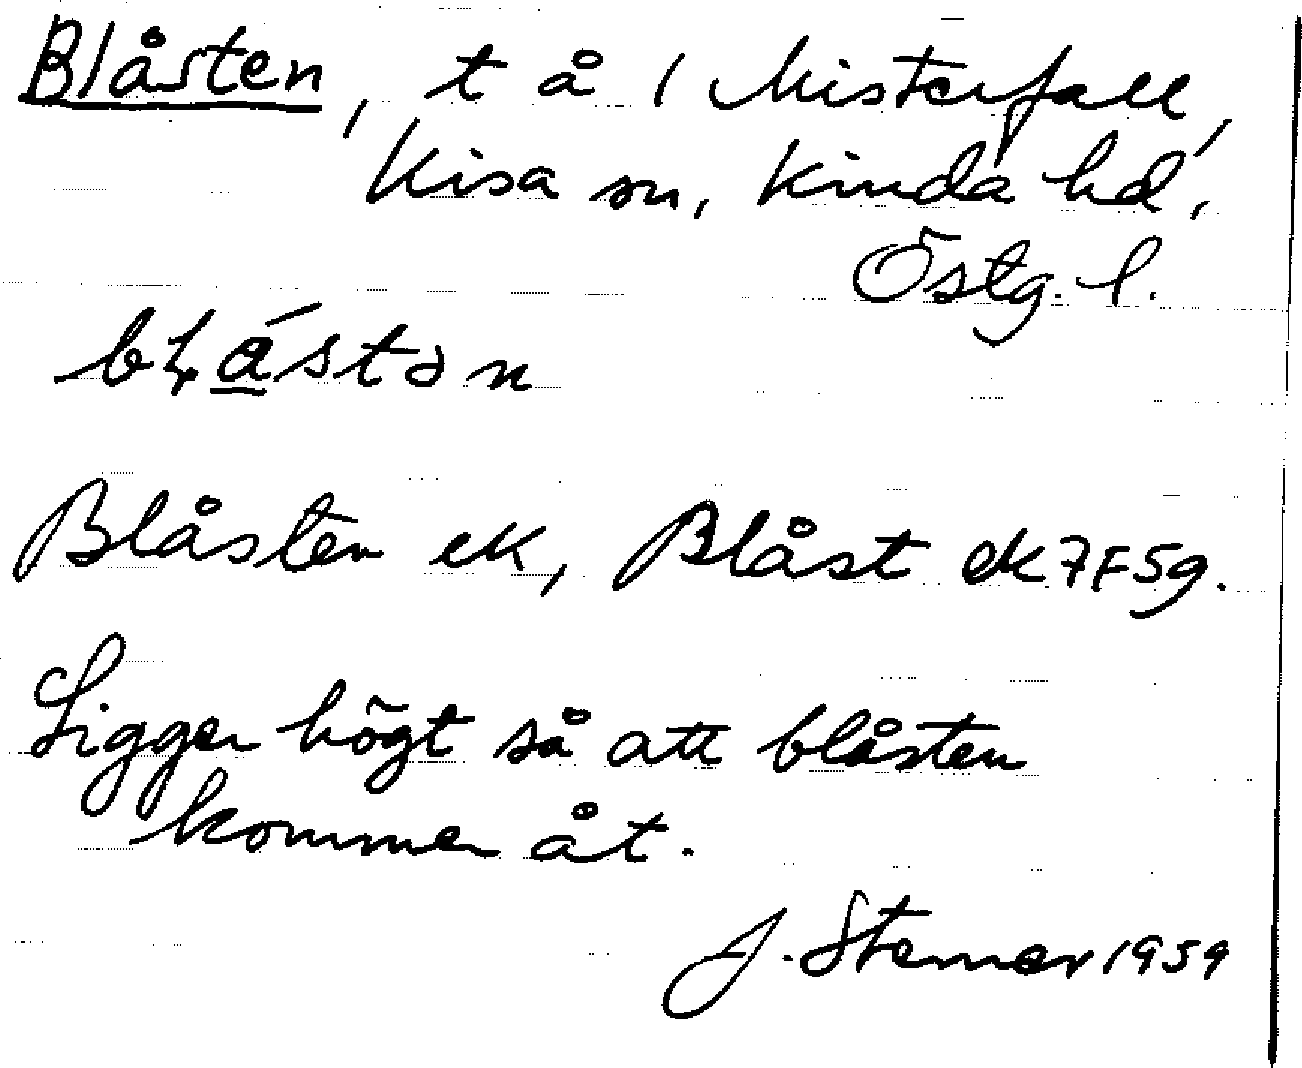 Blåsten, t å 1 Misterfall,
Kisa sn, Kinda hd,
Östg. l.
Blåsten ek, Blåst ek 7F5g.
Ligger högt så att blåsten
kommer åt.
J. Sterner 1959